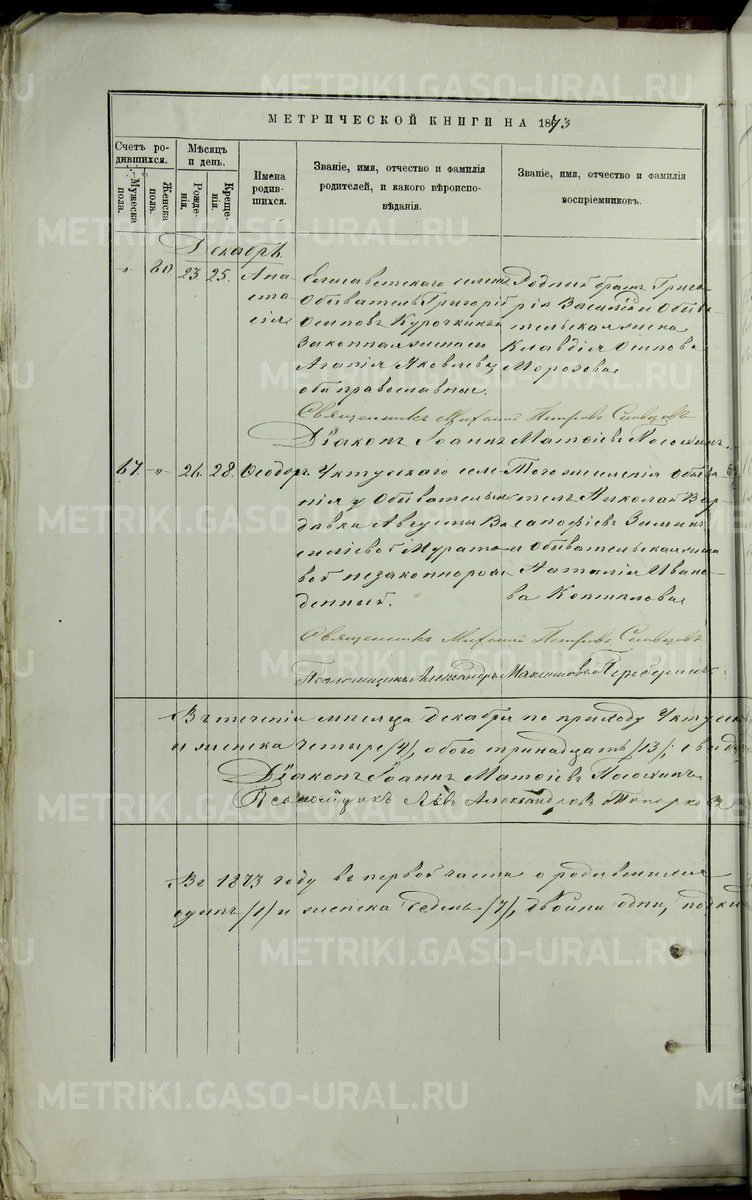 МЕТРИЧЕСКОЙ КНИГИ НА 1873
Счетъ ро-
дившихся.
Мужеска
пола.
Женска
пола.
Мѣсяцъ
и день.
Рожде-
нія.
Креще-
нія.
Имена
родив-
шихся.
Званіе, имя, отчество и фамилія
родителей, и какого вѣроиспо-
вѣданія.
Званіе, имя, отчество и фамилія
воспріемниковъ.
Декабрь
" 80 23 25. Ана
ста
сія
Елисаветскаго селенія
Обыватель Григорій
Осиповъ Курочкинъ и
законная жена его
Агапія Яковлева
оба православные.
Родный братъ Григо-
рія Василій и Обыва-
тельская жена
Клавдія Осипова
Морозова
Священникъ Михаилъ Петровъ Словцовъ
Діаконъ Іоаннъ Матѳіевъ
67. " 26. 28. Ѳеодоръ
Уктускаго селе
нія у Обывательской
дѣвки Августы Ва
силіевой Муратов
вой незаконнорож
денный.
Того же селенія Обыва
тель Николай Вар
Зимин
и Обывательская жена
Наталія Ивано
ва Копылова
Священникъ Михаилъ Петровъ Словцовъ
Псаломщикъ Александръ Максимовъ
Въ теченіи мѣсяца Декабря по приходу Уктуск
и женска четыре /4/, обоего тринадцать /13/;
Діаконъ Іоаннъ Матѳіевъ
Псаломщикъ Левъ Александровъ Топорковъ
Въ 1873 году въ первой части о родившихся
одинъ /1/ и женска седмь /7/, двойни одни,
METRIKI.GASO-URAL.RU